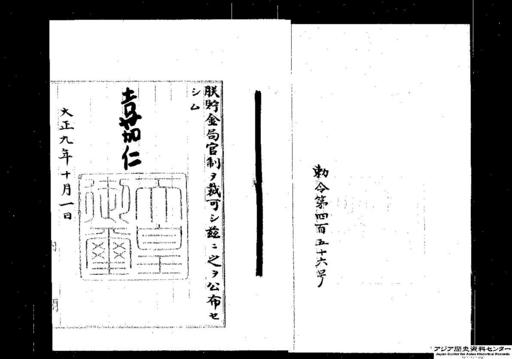 勅令第四百五十六号
朕貯金局官制ヲ裁可シ茲ニ之ヲ公布セ
シム
嘉仁
天皇
御璽
大正九年十月一日
アジア歴史資料センター
Japan Center for Asian Historical Records